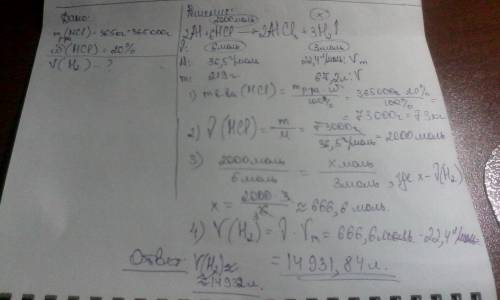 Дано:
m р-ра (HCl) = 365кг = 365000г
ω(HCl) = 20%
V(H₂) - ?
Решение:
2000моль x
2Al + 6HCl → 2AlCl₃ + 3H₂↑
ν: 6моль 3моль
M: 36,5г/моль 22,4л/моль: Vm
m: 219г 67,2л: V
1) m в-ва (HCl) = m р-ра · ω / 100% = 365000г · 20% / 100% =
= 73000г = 73кг
2) ν(HCl) = m / M = 73000г / 36,5г/моль = 2000моль
3) 2000моль / 6моль = x моль / 3моль, где x - ν(H₂)
x = 2000 · 3 / 6 ≈ 666,6 моль.
4) V(H₂) = ν · Vm = 666,6моль · 22,4л/моль
= 14931,84л.
Ответ: V(H₂) ≈
≈ 14932л.